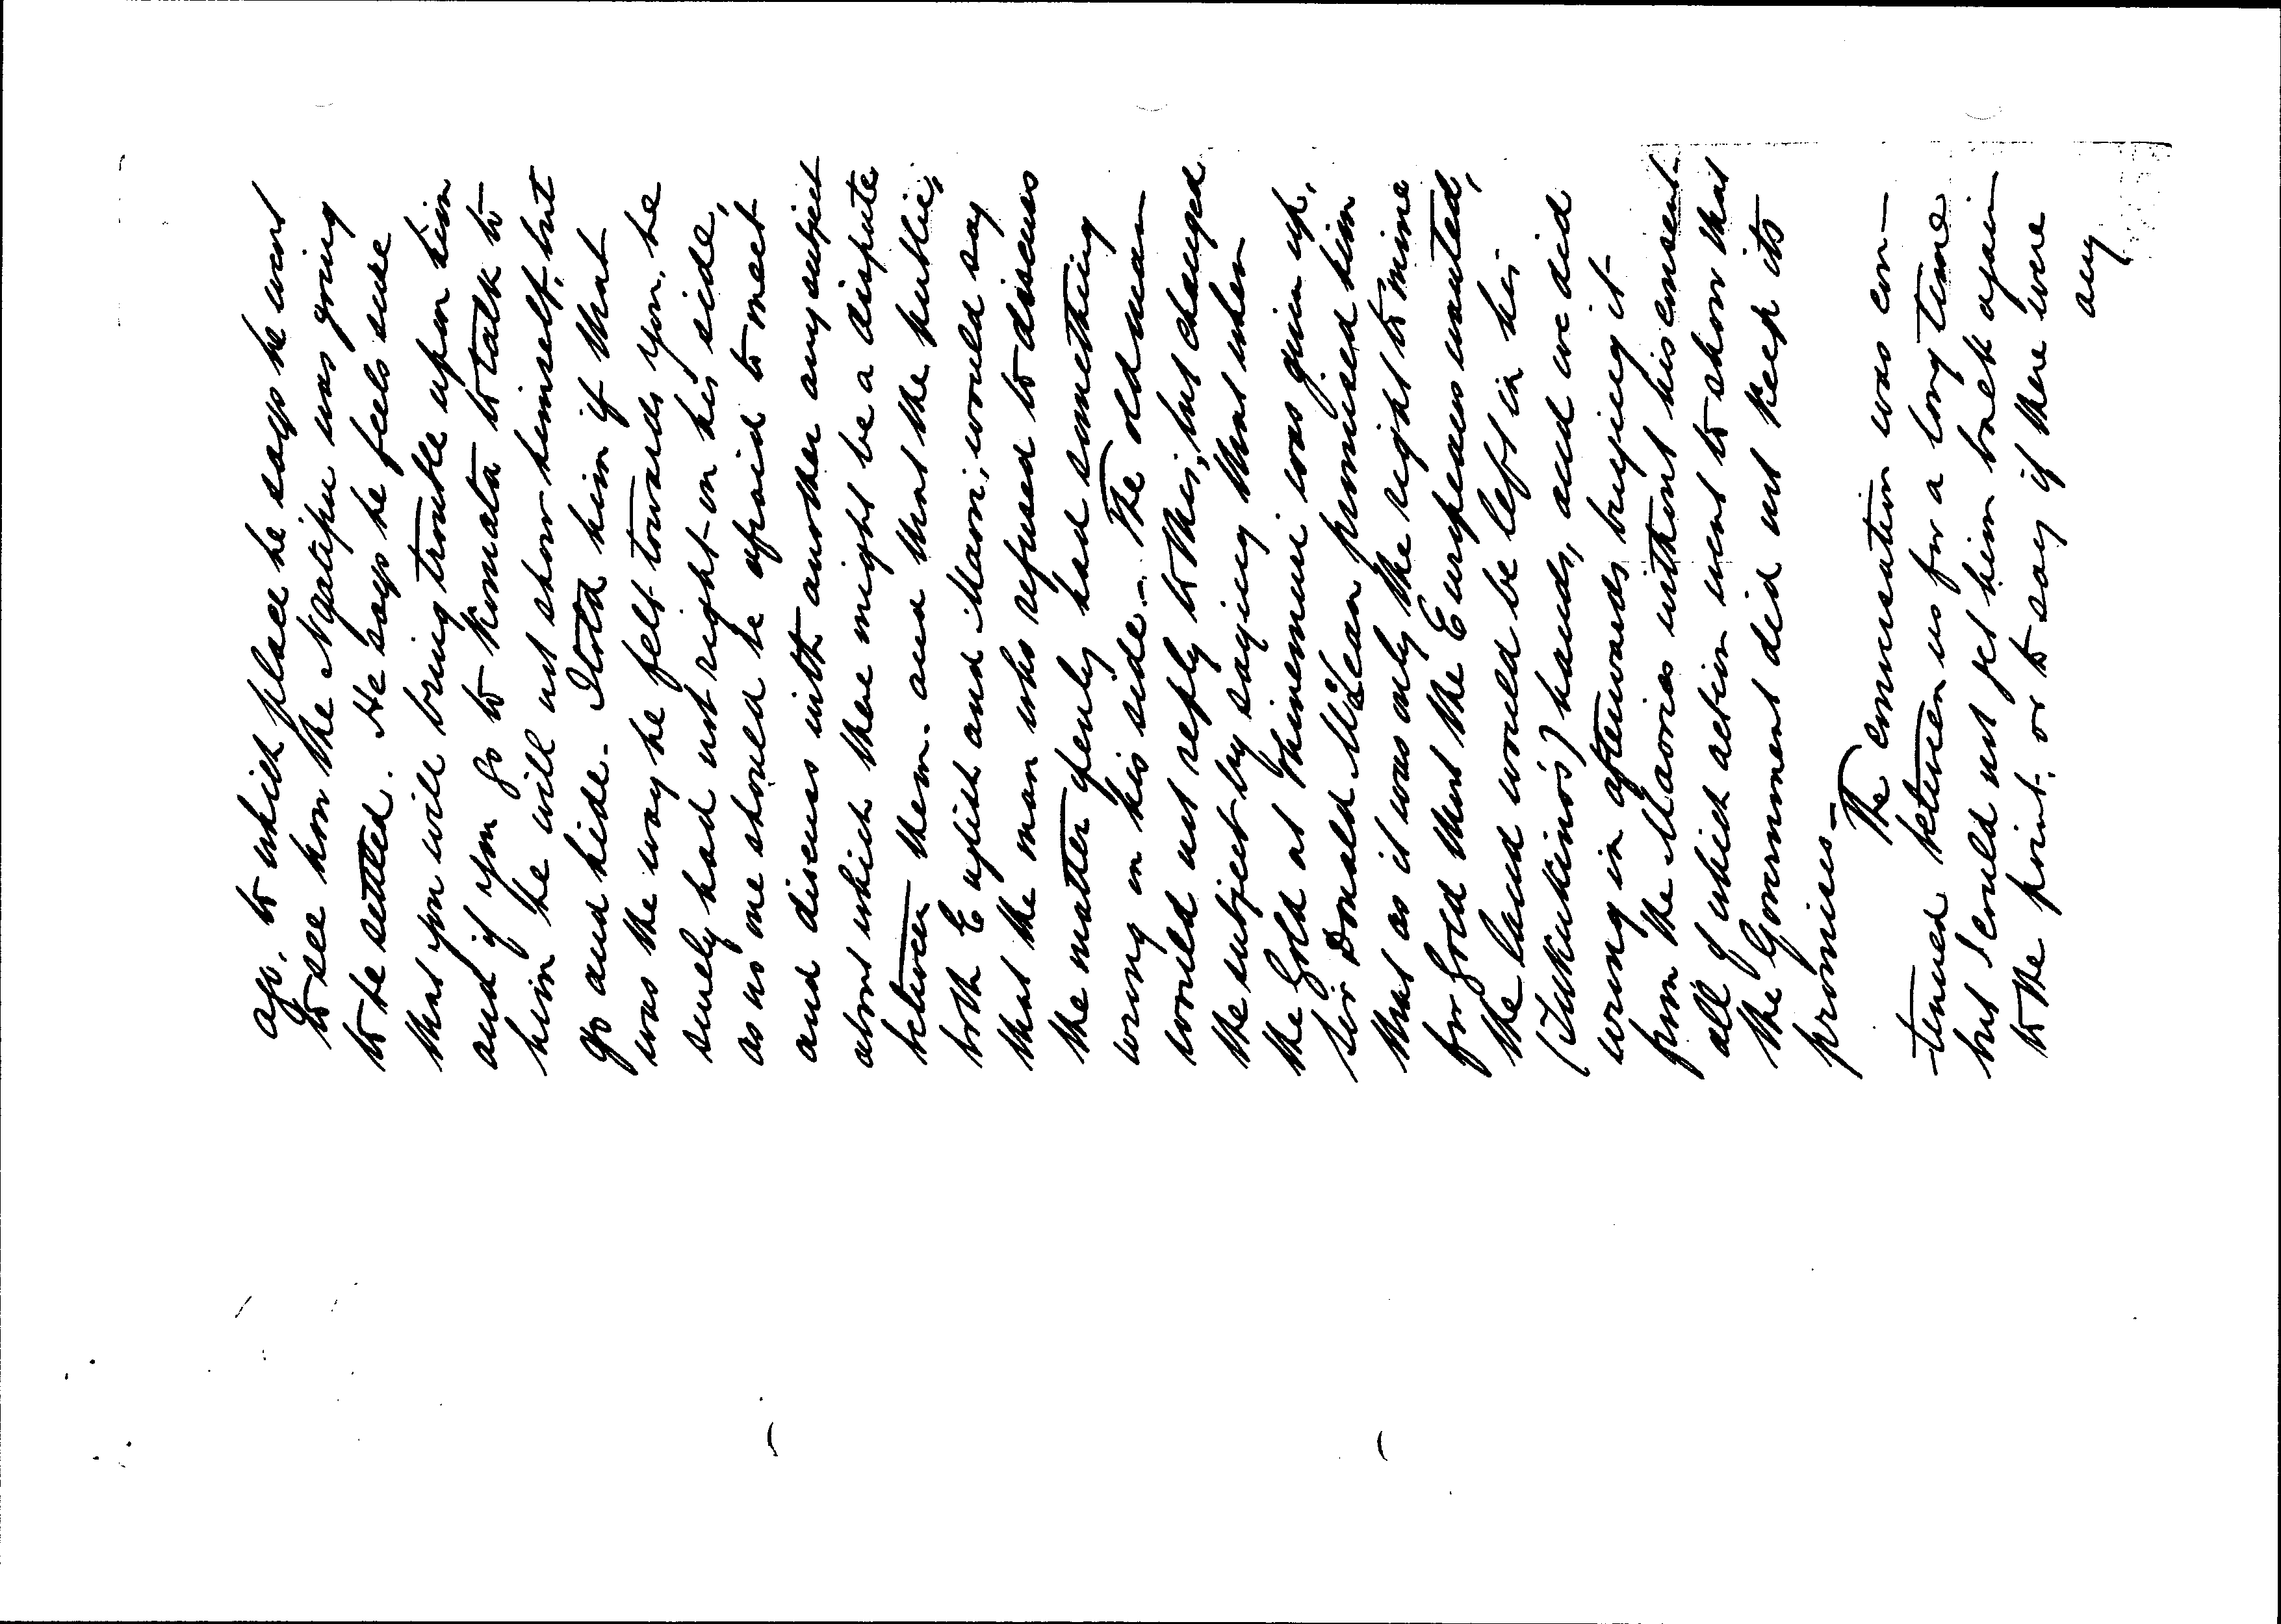 ago, to which place he says he went
to see how the Ngatipu was going
to be settled. He says he feels sure
that you will bring trouble upon him
and if you go to Komata to talk to
him he will not show himself, but
go and hide. I told him if that
was the way he felt towards you, he
surely had not right on his side,
as no one should be afraid to meet
and discuss with another any subject
about which there might be a dispute
between them. and that the public,
both English and Maori, would say
that the man who refused to discuss
the matter openly had something
wrong on his side. The old man
would not reply to this, but changed
the subject by saying that when
the Gold at Ohinemuri was given up,
Sir Donald McLean promised him
that as it was only the right to mine
for Gold that the Europeans wanted,
the land would be left in his
(Tukukino's) hands, and we did
wrong in afterwards buying it
from the Maories without his consent
all of which action went to show that
the Government did not keep its
promises -
The conversation was con-
tinued between us for a long time
but I could not get him back again
to the point. or to say if there were
any